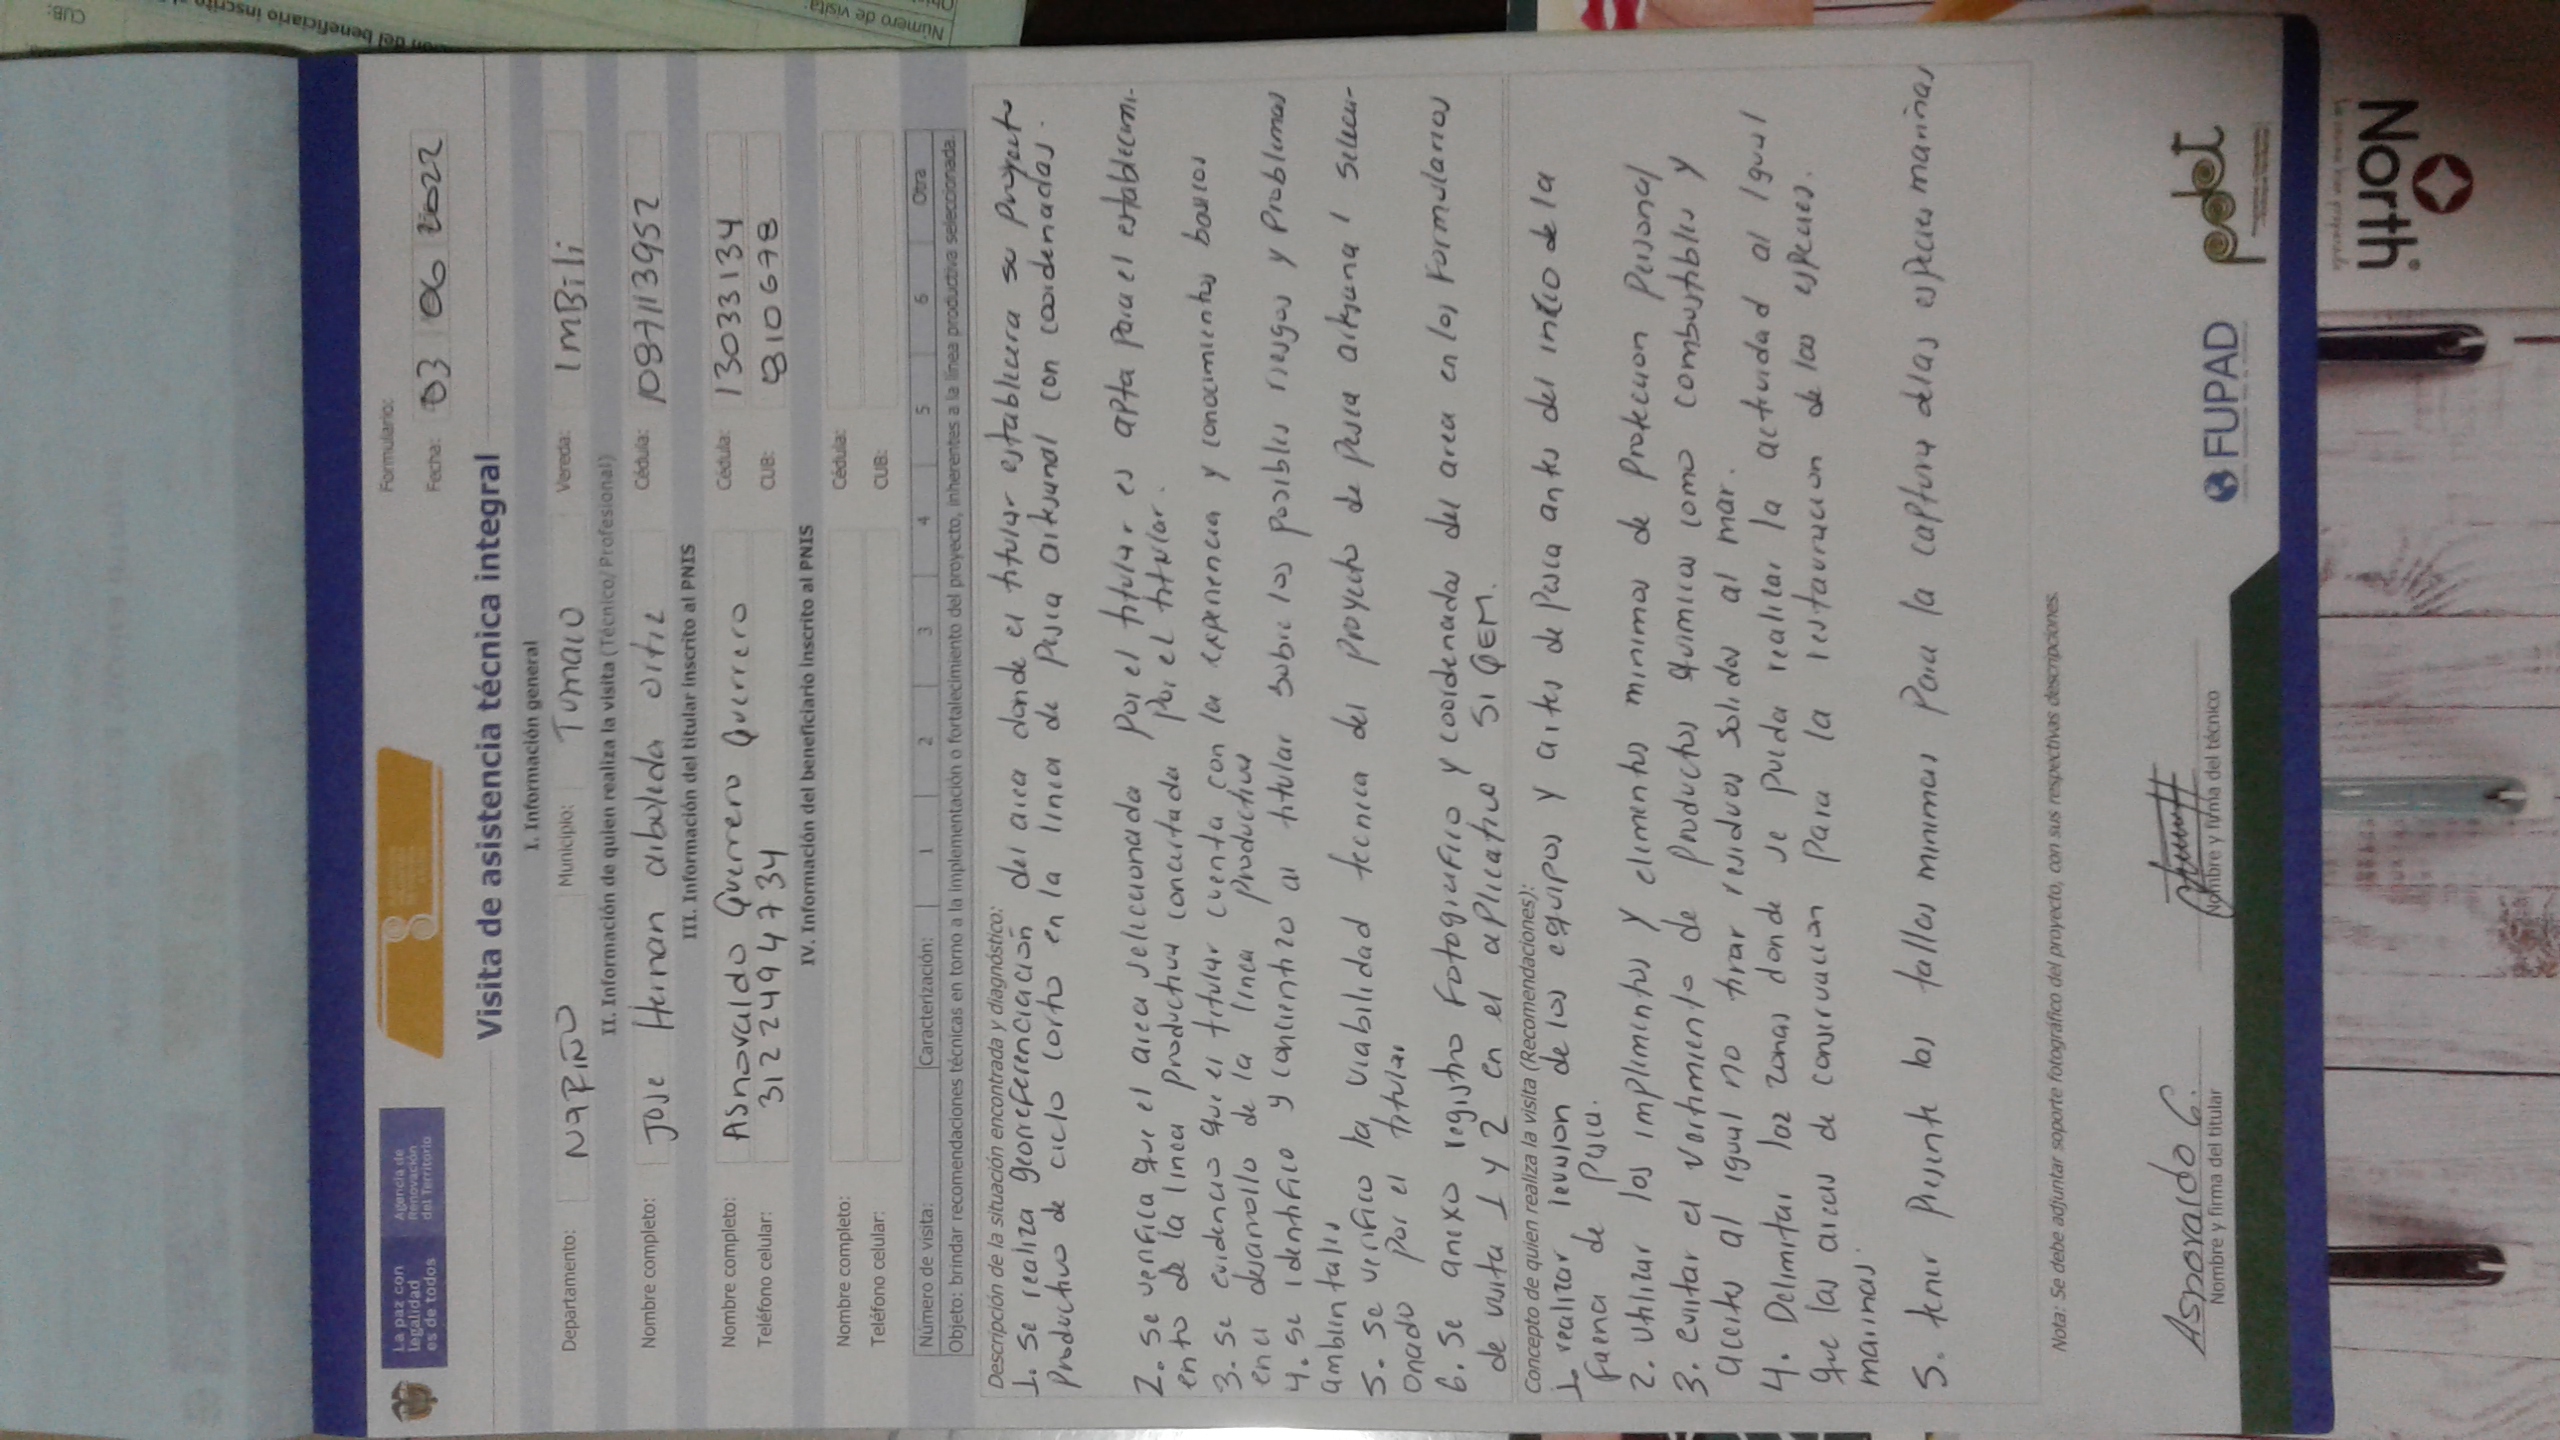 La paz con
legalidad
es de todos
Agencia de
Renovación
del Territorio
Formulario:
Fecha: 03 06 2022
Visita de asistencia técnica integral
I. Información general
Departamento: NARIÑO Municipio: TUMACO Vereda: ImBili
II. Información de quien realiza la visita (Técnico/Profesional)
Nombre completo: Jose Hernan arboleda ortiz Cédula: 1087113952
III. Información del titular inscrito al PNIS
Nombre completo: Asnovaldo Guerrero Guerrero Cédula: 13033134
Teléfono celular: 3122494734 CUB: 810678
IV. Información del beneficiario inscrito al PNIS
Nombre completo: Cédula:
Teléfono celular: CUB:
Número de visita: Caracterización: 1 2 3 4 5 6 Otra
Objeto: brindar recomendaciones técnicas en torno a la implementación o fortalecimiento del proyecto, inherentes a la línea productiva seleccionada.
Descripción de la situación encontrada y diagnóstico:
1. Se realiza georreferenciación del area donde el titular establecera su proyecto
productivo de ciclo corto en la linea de pesca artesanal con coordenadas.
2. se verifica que el area seleccionada por el titular es apta para el establecimi-
ento de la linea productiva concertada por el titular.
3. se evidencio que el titular cuenta con la experiencia y conocimientos basicos
en el desarrollo de la linea productiva
4. se identifico y concientizo al titular sobre los posibles riesgos y problemas
ambientales
5. se verifico la viabilidad tecnica del proyecto de pesca artesanal selecci-
onado por el titular
6. se anexo registro fotografico y coordenadas del area en los formularios
de visita 1 y 2 en el aplicativo SIGEM.
Concepto de quien realiza la visita (Recomendaciones):
1. realizar revision de los equipos y artes de pesca antes del inicio de la
faena de pesca.
2. utilizar los implementos y elementos minimos de proteccion personal
3. evitar el vertimiento de productos quimicos como combustibles y
aceites al igual no tirar residuos solidos al mar.
4. Delimitar las zonas donde se pueda realizar la actividad al igual
que las areas de conservacion para la restauracion de las especies
marinas.
5. tener presente las tallas minimas para la captura de las especies marinas
Nota: Se debe adjuntar soporte fotográfico del proyecto, con sus respectivas descripciones.
Asnovaldo G.
Nombre y firma del titular
Nombre y firma del técnico
FUPAD
pdet
North
Número de visita:
CUB: